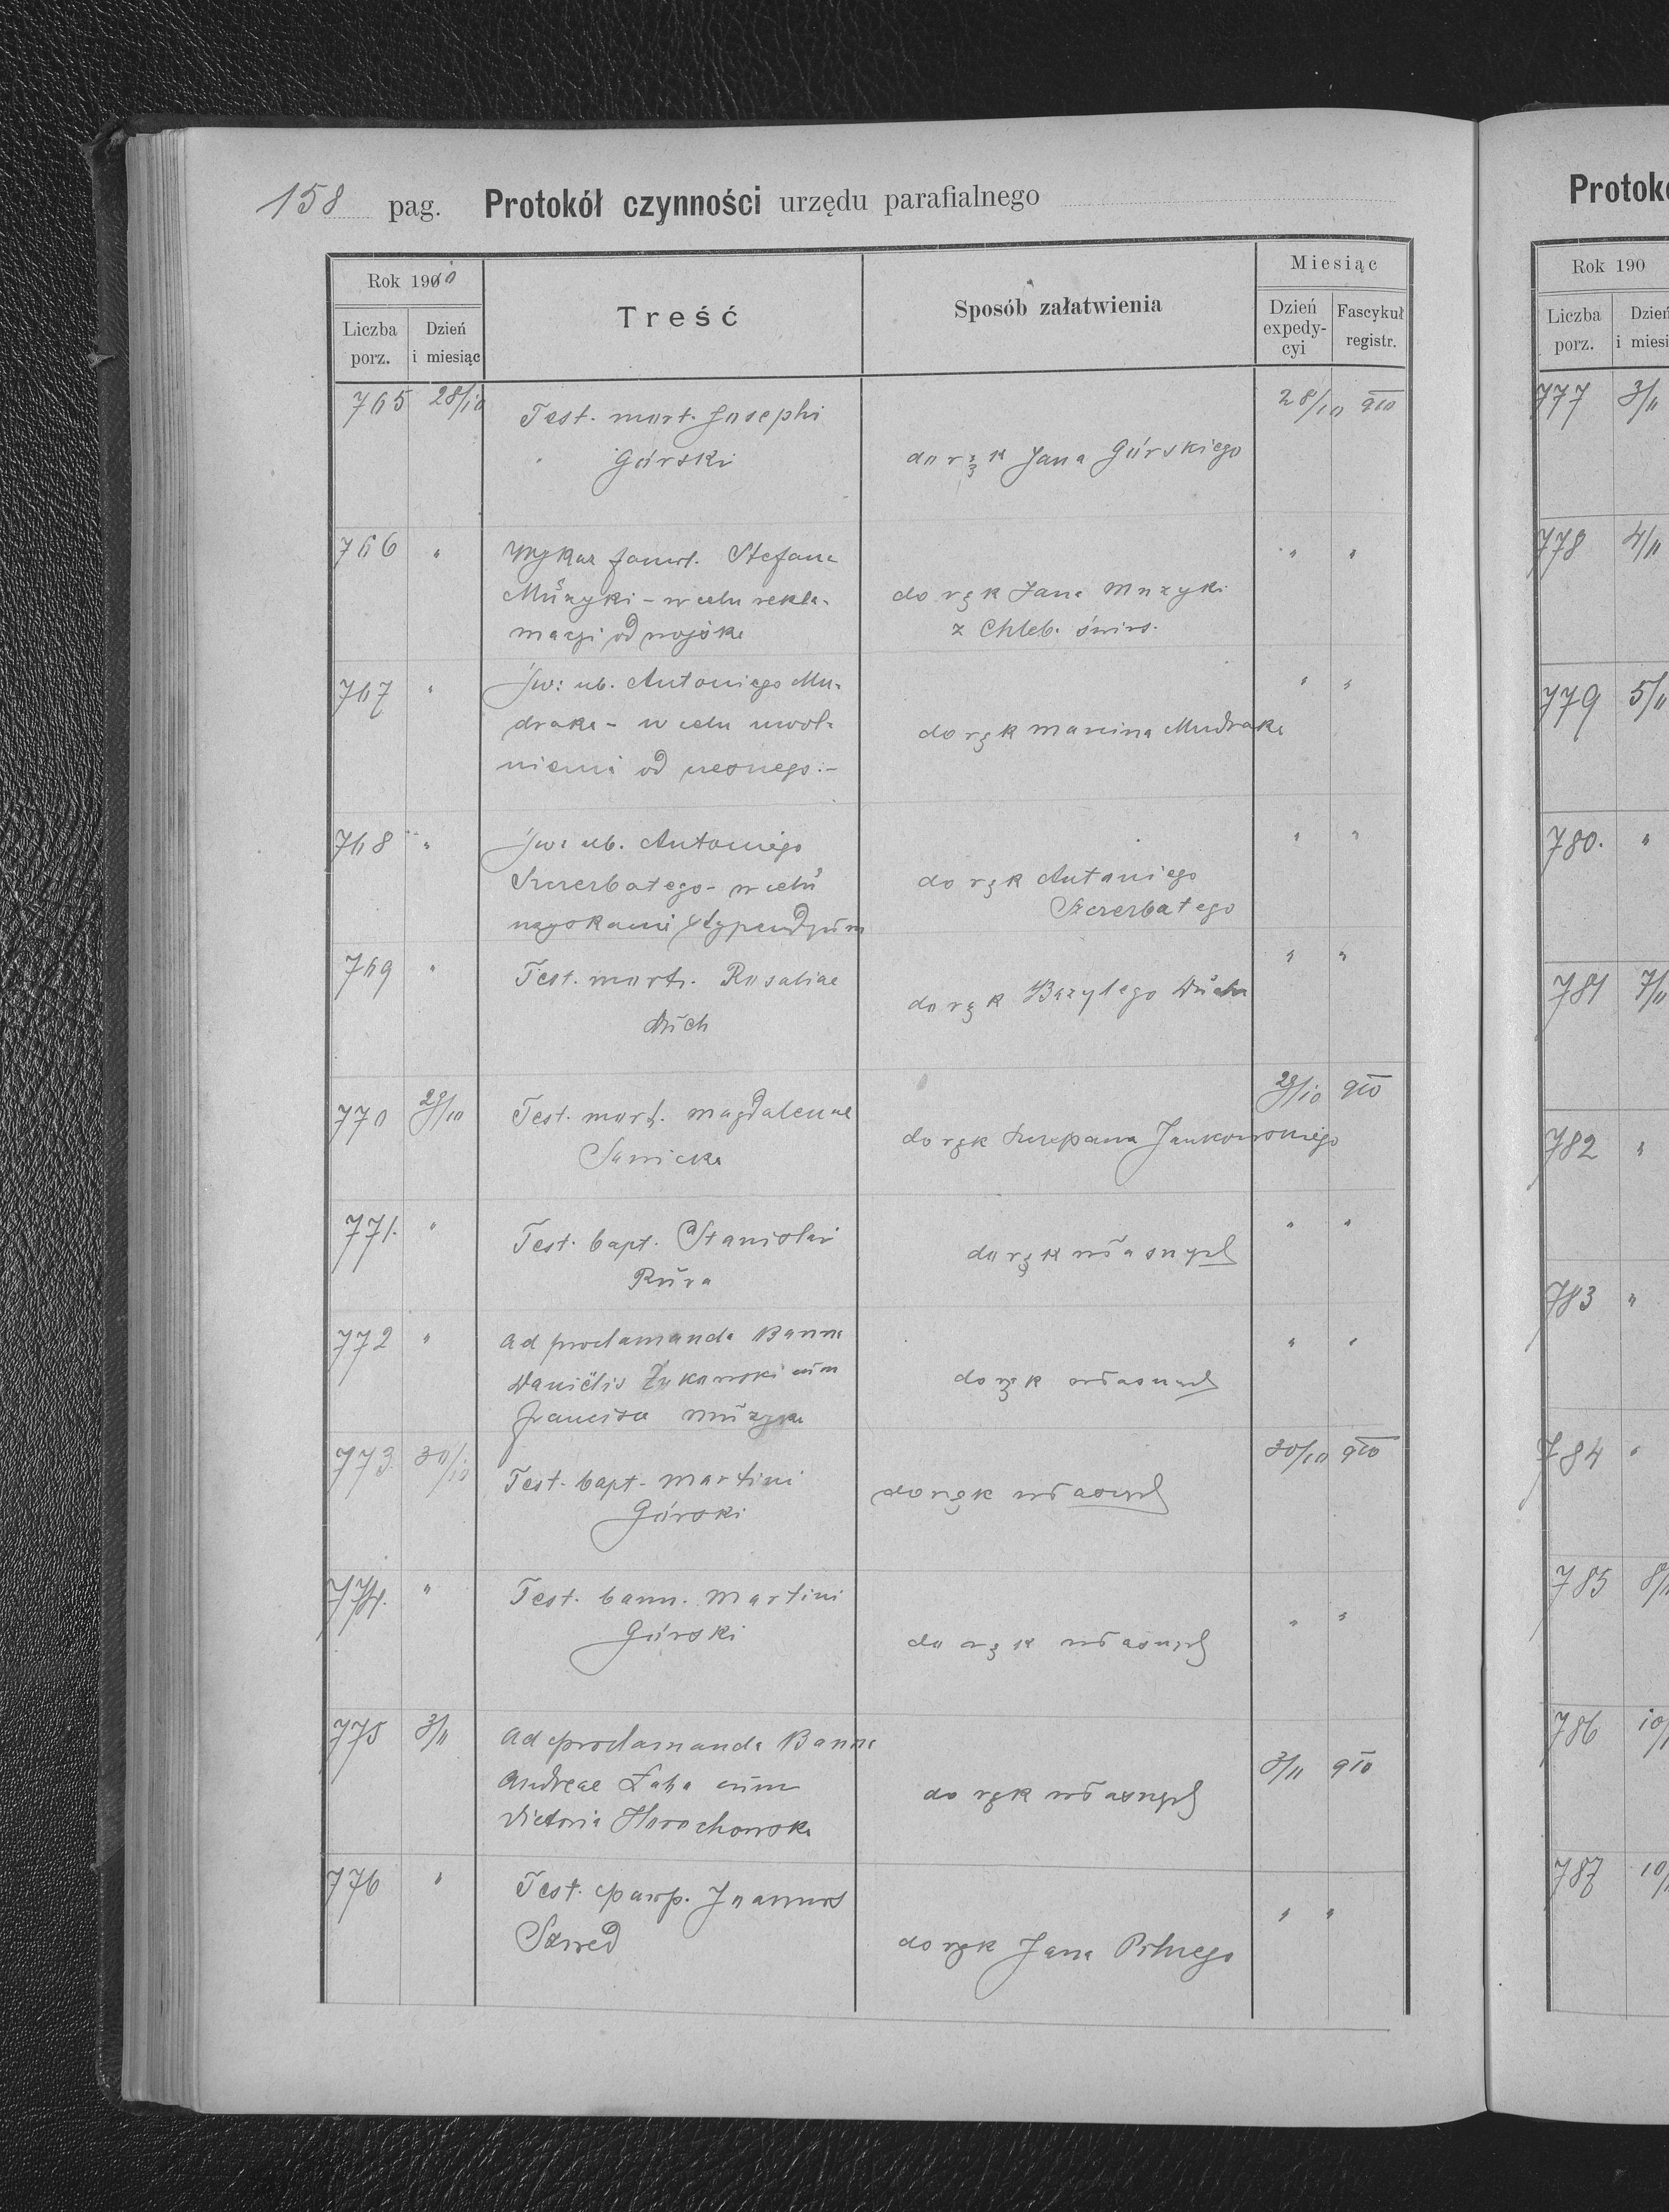 158 pag. Protokół czynności urzędu parafialnego
Rok 1910
Treść
Sposób załatwienia
Miesiąc
Liczba porz.
Dzień i miesiąc
Dzień expedycyi
Fascykuł registr.
765 28/10 Test. mort. Josephi 28/10
Górski do rąk Jana Górskiego
766 " Wykaz famil. Stefana " "
Muzyki - w celu rekla- do rąk Jana Muzyki
macyi od wojska z Chleb. świrs.
767 " Jw: ub. Antoniego Mu- " "
draka - w celu uwol- do rąk Marcina Mudraka
nienia od
768 " Jw: ub. Antoniego " "
Szczerbatego - w celu do rąk Antoniego
uzyskania stypendyum Szczerbatego
769 " Test. mort. Rosaliae " "
Duch do rąk Bazylego Ducha
770 29/10 Test. mort. Magdalenae 29/10
Sawicka do rąk Szczepana Jankowskiego
771. " Test. bapt. Stanislai " "
Rura do rąk własnych
772 " Ad proclamanda Banna " "
Danielis Żukowski cum do rąk własnych
Francisca Muzyka
773 30/10 Test. bapt. Martini 30/10
Górski do rąk własnych
774. " Test. bann. Martini " "
Górski do rąk własnych
775 3/11 Ad proclamanda Banna 3/11
Andreae Łaba cum do rąk własnych
Victoria Horochowska
776 " Test. paup. Joannis " "
Szwed do rąk Jana Pilnego
Protok
Rok 190
Liczba porz.
Dzień i miesi
777 3/11
778 4/11
779 5/11
780. "
781 7/11
782 "
783 "
784 "
785 8/11
786 10/
787 10/